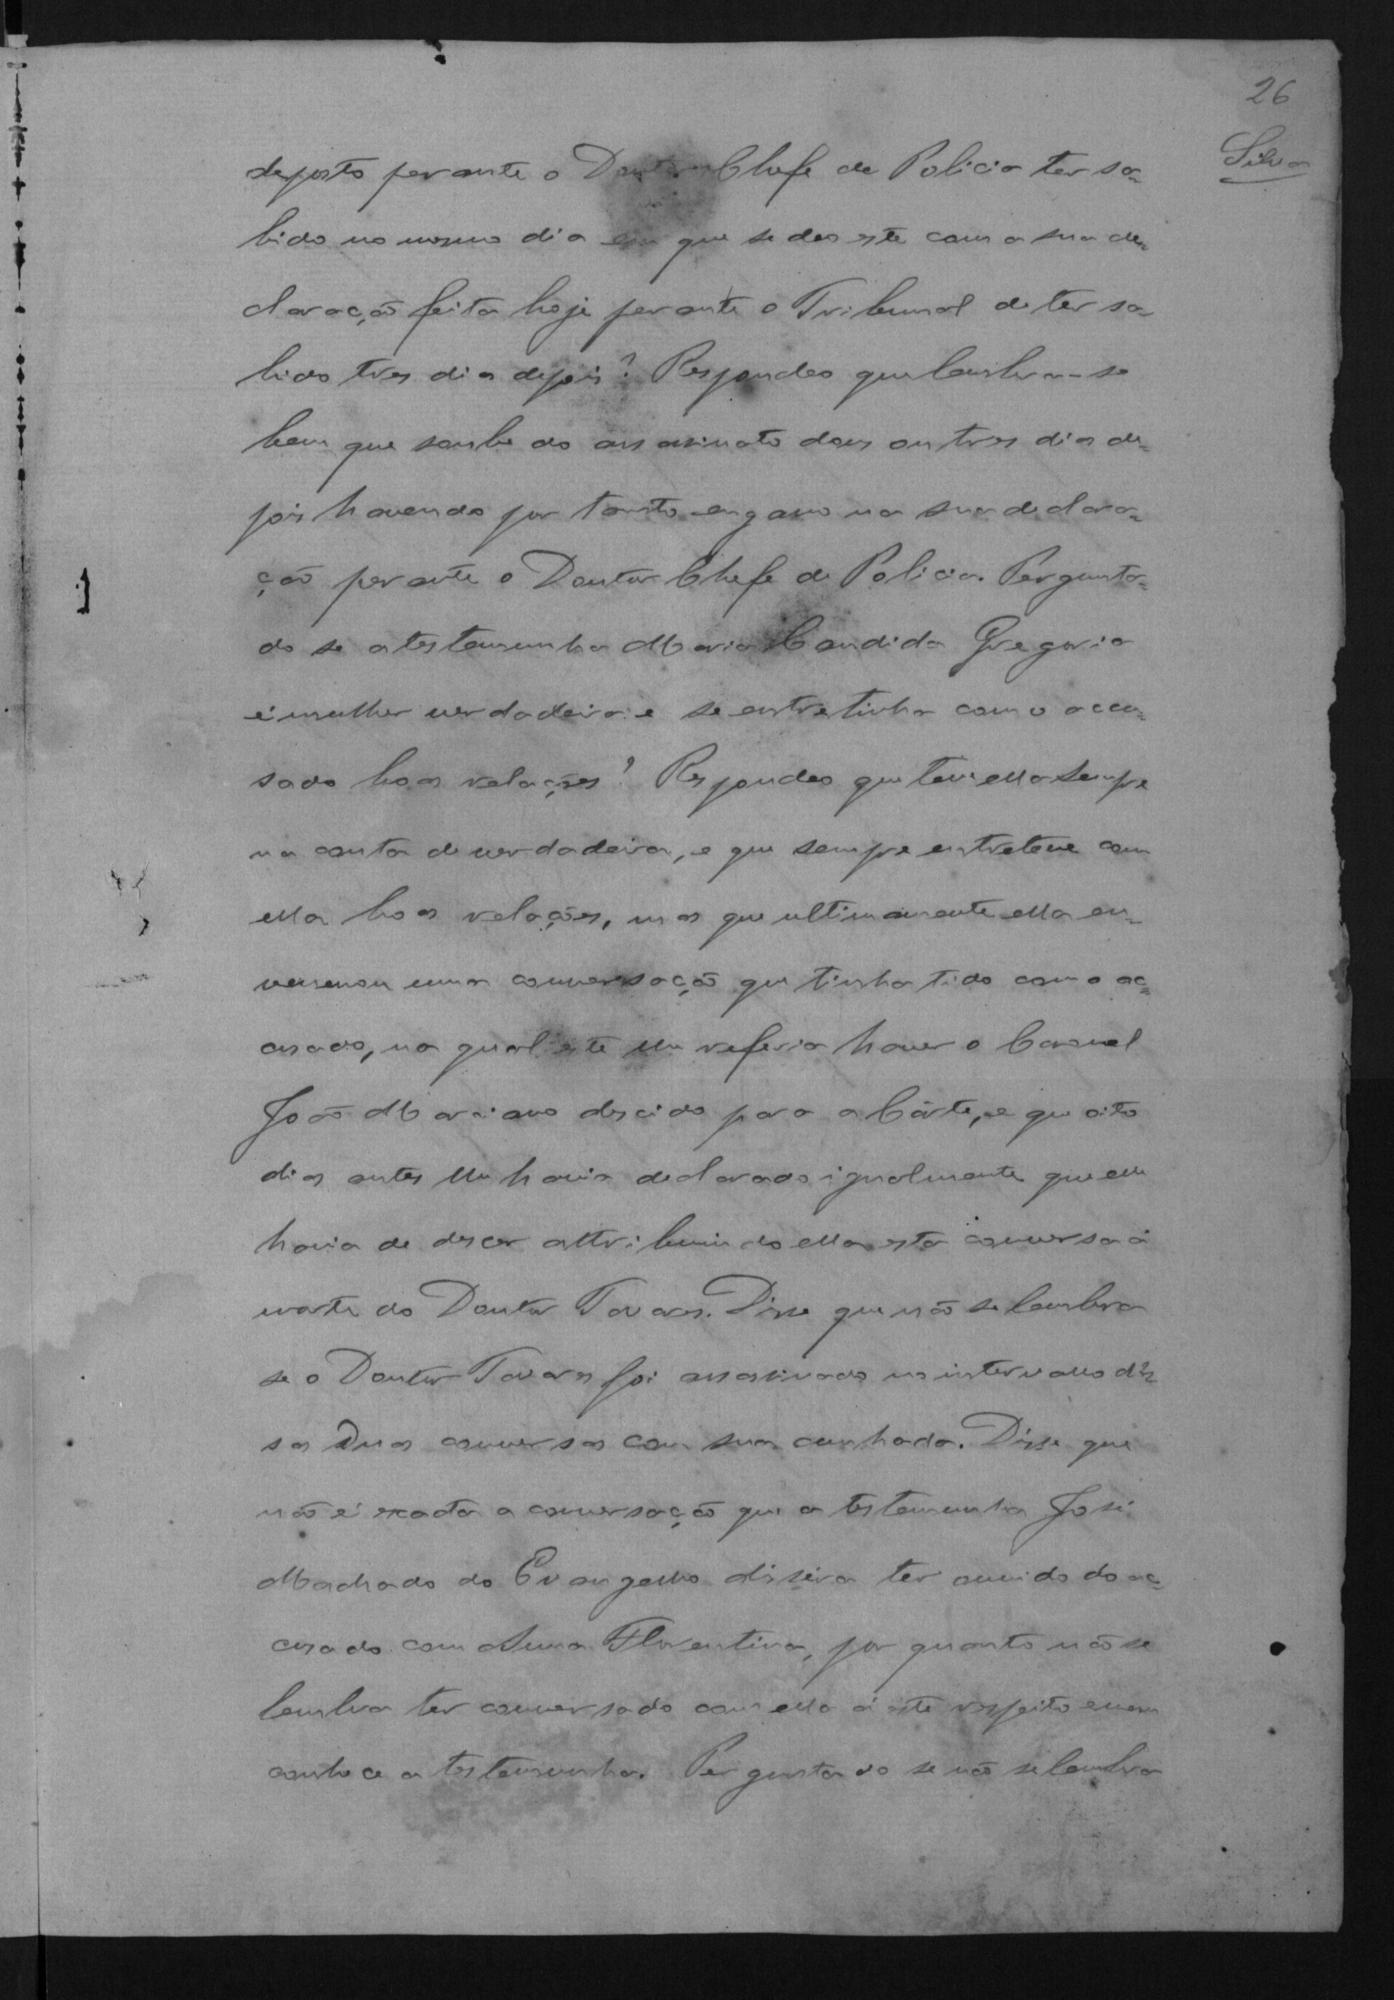 26
Silva
deposto perante o Doutor Chefe de Policia ter sa-
bido no mesmo dia em que se deo este com a sua de-
claração feita hoje perante o Tribunal de ter sa-
bido tres dia depois? Respondeo que lembra-se
bem que soube do assassinato dous ou tres dia de-
pois havendo por tanto engano na sua declara-
ção perante o Doutor Chefe de Policia. Pergunta-
do se a testemunha Maria Candida Gregoria
é mulher verdadeira e se entretinha com o accu-
sado boas relações? Respondeo que teve ella sempre
na conta de verdadeira, e que sempre entreteve com
ella boas relações, mas que ultimamente ella en-
venenou uma conversação que tinha tido com o ac-
cusado, na qual este lhe referia haver o Coronel
João Marciano descido para a Côrte, e que oito
dias antes lhe havia declarado igualmente que elle
havia de descer attribuindo ella esta conversa á
morte do Doutor Tavares. Disse que não se lembra
se o Doutor Tavares foi assassinado no intervallo d'es-
sas duas conversas com sua cunhada. Disse que
não é exacta a conversação que a testemunha José
Machado do Evangelho dissera ter ouvido do ac-
cusado com Anna Florentina, por quanto não se
lembra ter conversado com ella á este respeito e nem
conhece a testemunha. Perguntado se não se lembra